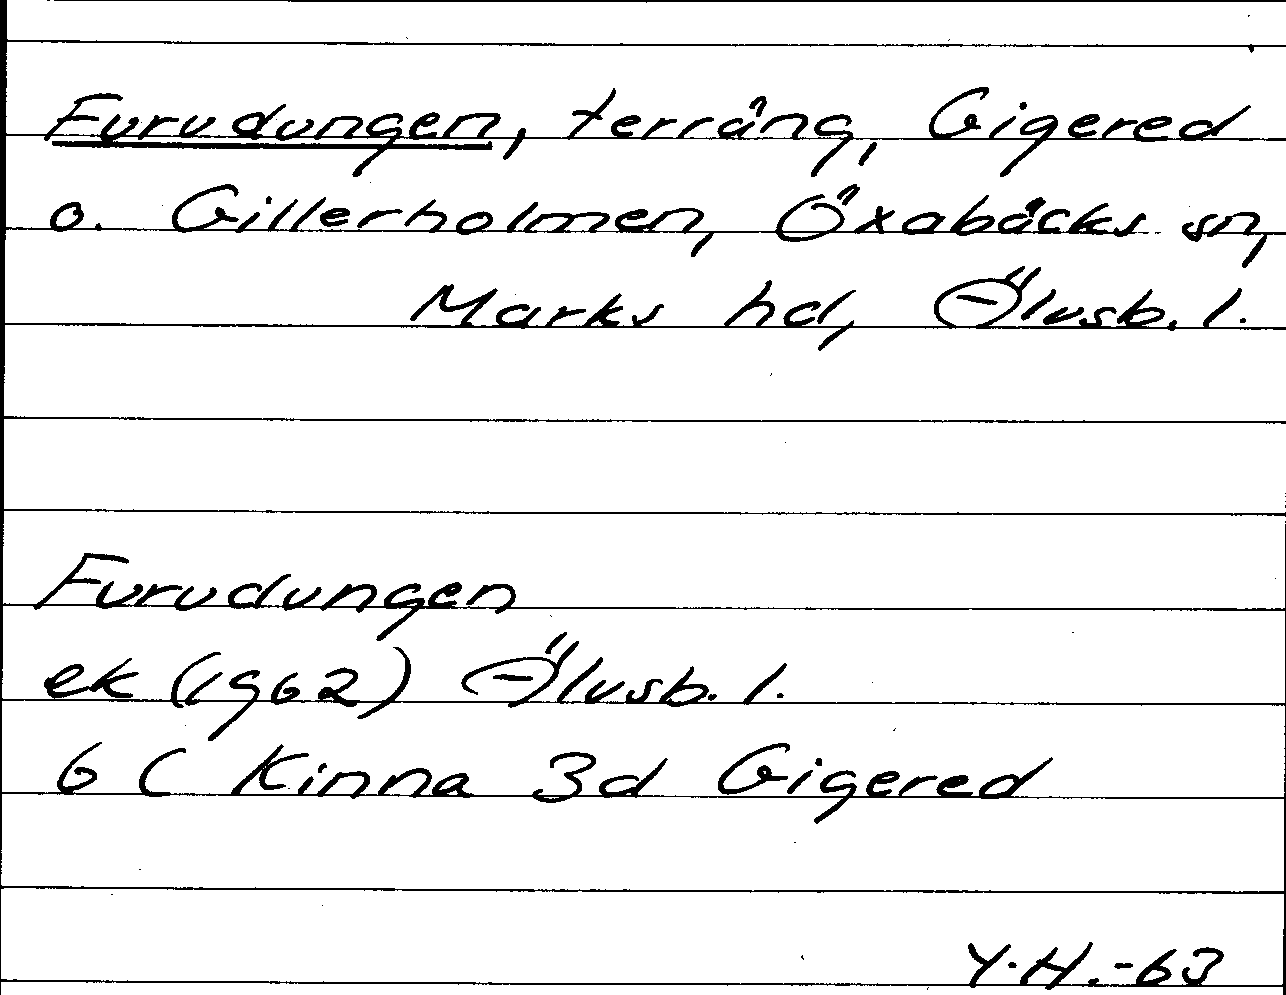 Furudungen, terräng, Gigered
o. Gillerholmen, Öxabäcks sn,
Marks hd, Älvsb. l.
Furudungen
ek (1962) Älvsb. l.
6 C Kinna 3d Gigered
Y.H.-63